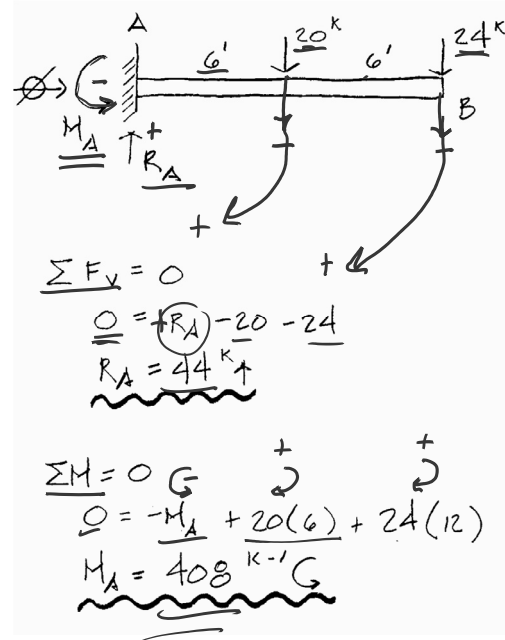 A
20ᴷ
24ᴷ
6' 6'
∅ −
B
M_A
+
R_A
+
+
Σ F_V = 0
0 = +R_A − 20 − 24
R_A = 44ᴷ ↑
+ +
ΣM = 0
0 = −M_A + 20(6) + 24(12)
M_A = 408ᴷ⁻'